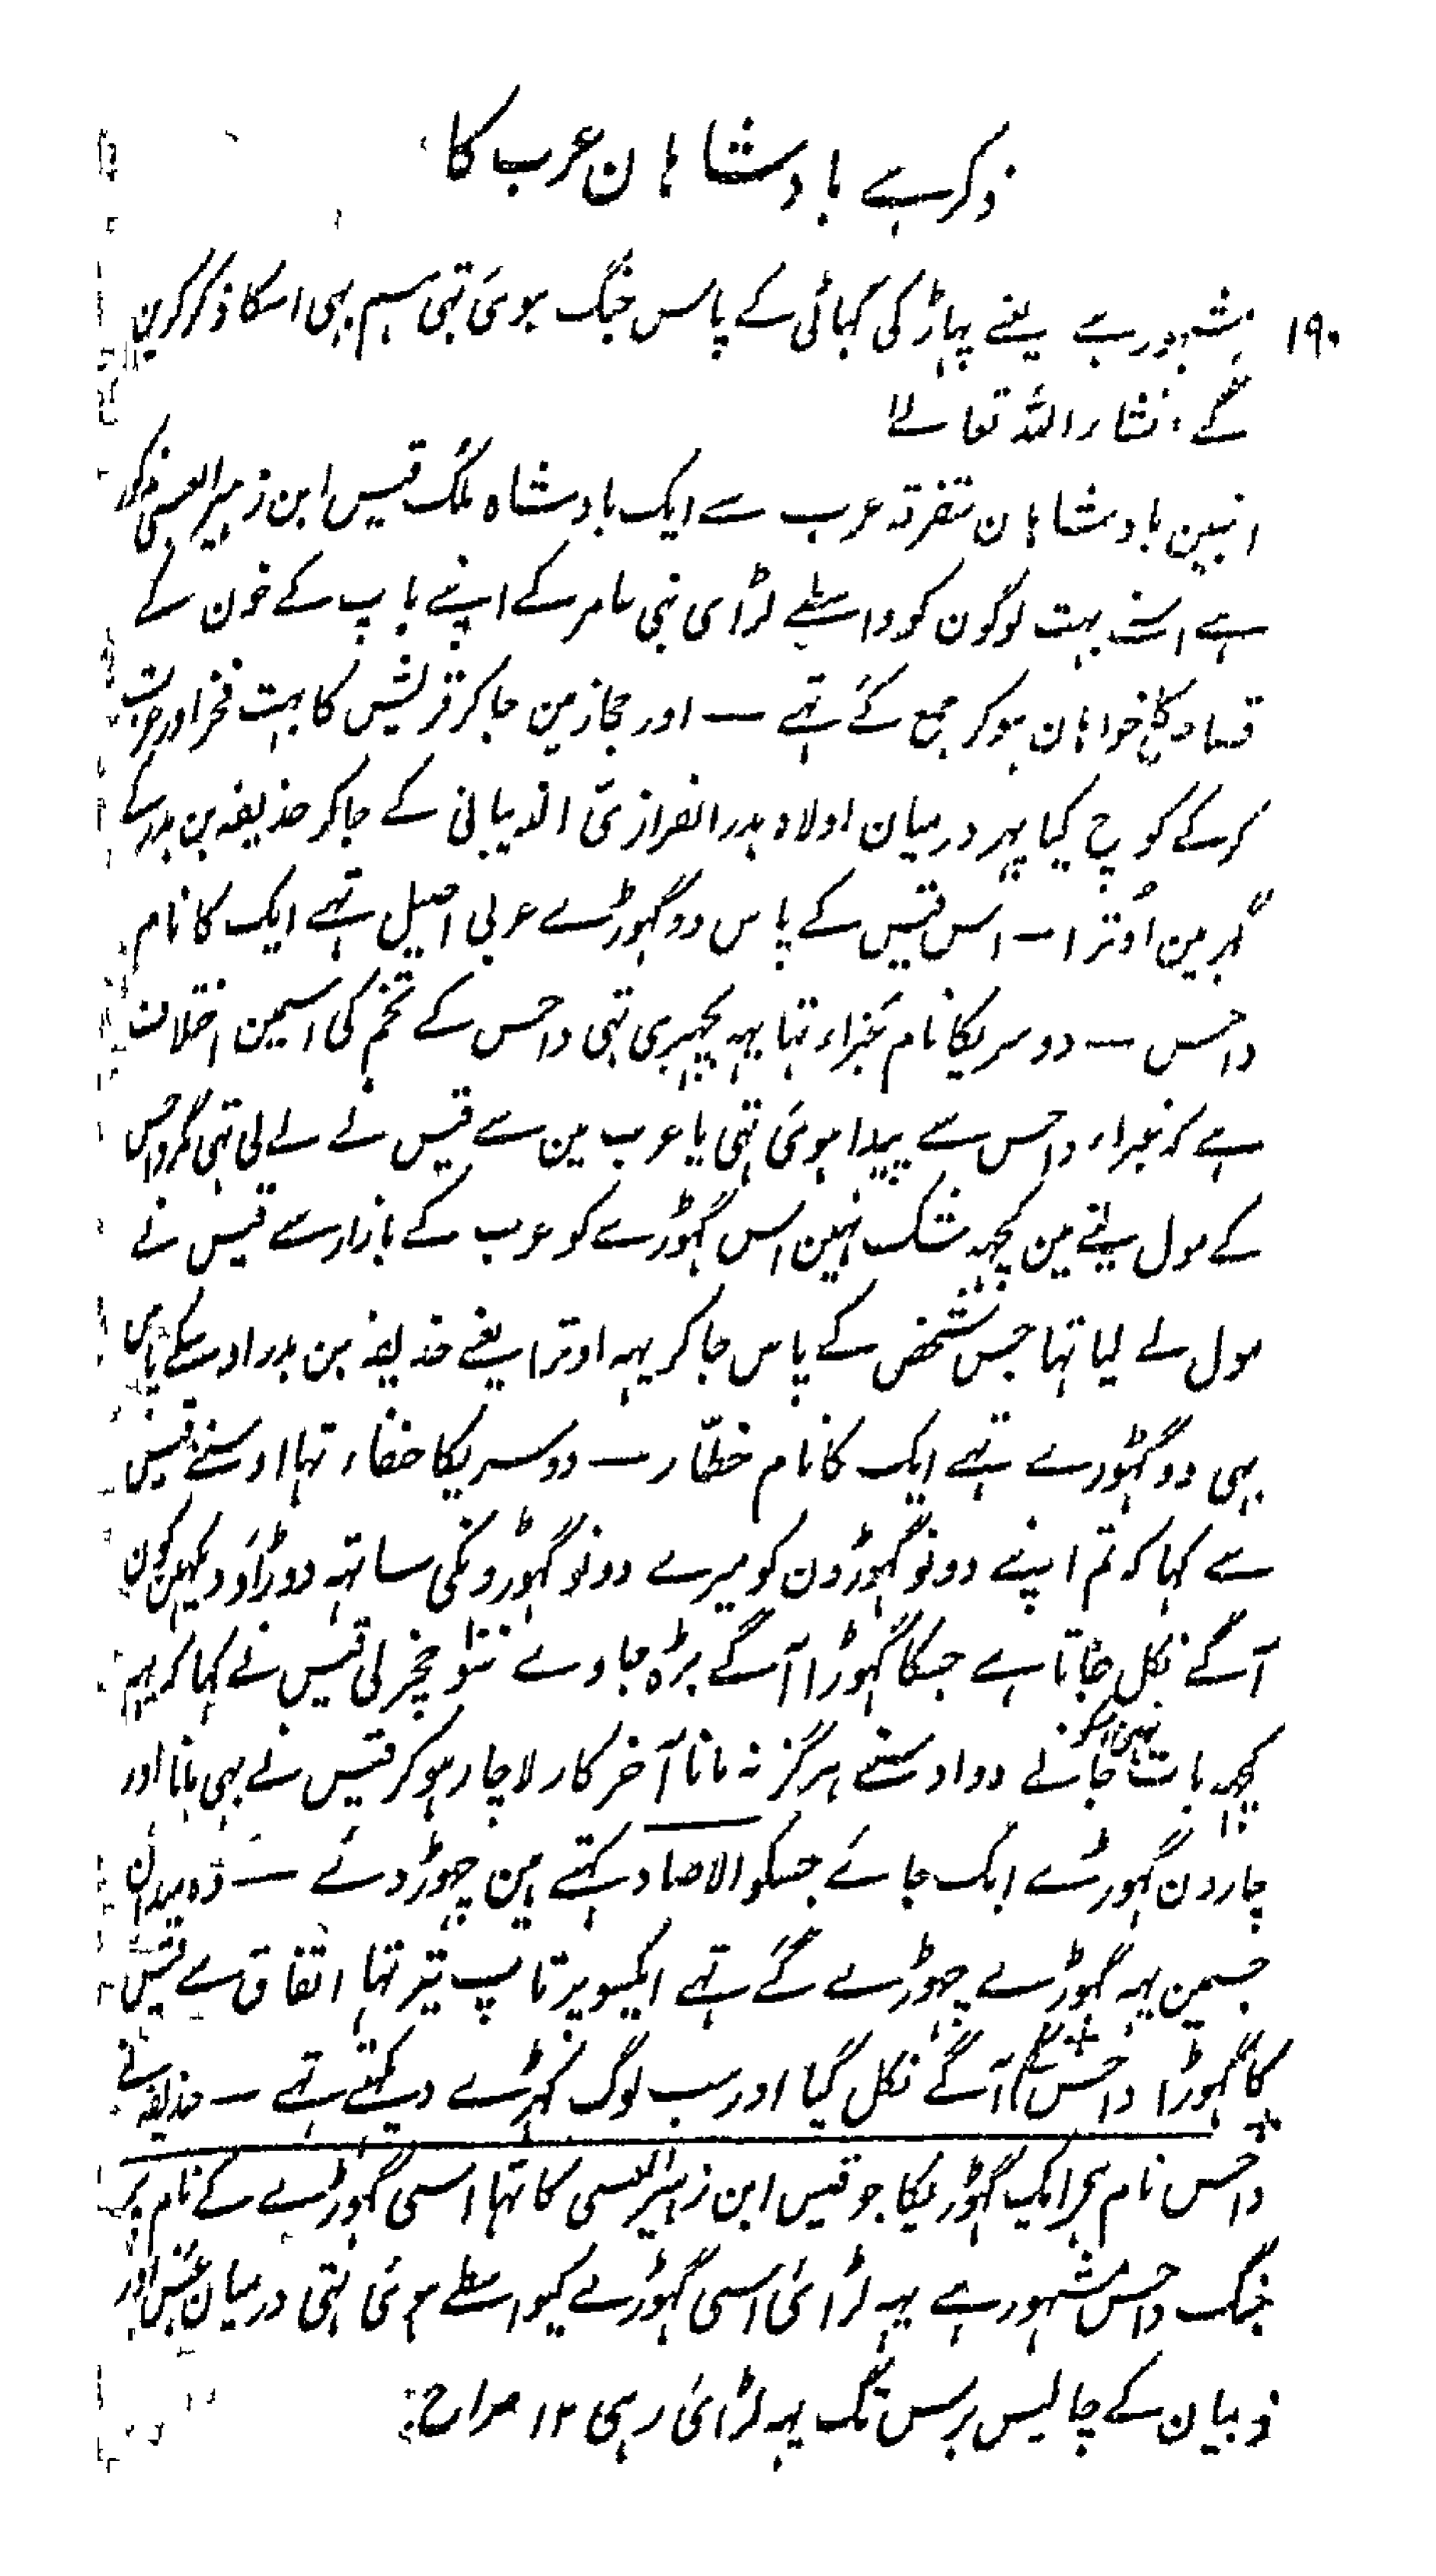 ذکر ہے بادشاہان عرب کا
۱۹۰
مشہور ہے یعنے پہاڑ کی گہاٹی کے پاس جنگ ہوئی تہی ہم بہی اسکا ذکر کرین
گے انشاء اللہ تعالے
انہین بادشاہان متفرقہ عرب سے ایک بادشاہ ملک قیس ابن زہیر العبسی مذکور
ہے اسنے بہت لوگون کو واسطے لڑائی بنی عامر کے اپنے باپ کے خون کے
قصاص کا خواہان ہو کر جمع کئے تہے — اور حجاز مین جا کر قریش کا بہت فخر اور
کر کے کوچ کیا پہر درمیان اولاد بدر الفزازیّ الذبیانی کے جا کر حذیفہ بن بدر کے
گہر مین اُوترا — اس قیس کے پاس دو گہوڑے عربی اصیل تہے ایک کا نام
داحس — دوسریکا نام غبراء تہا یہہ بچہیری تہی داحس کے تخم کی اسمین اختلاف
ہے کہ غبراء داحس سے پیدا ہوئی تہی یا عرب مین سے قیس نے لے لی تہی مگر داحس
کے مول لینے مین کچہہ شک نہین اس گہوڑے کو عرب کے بازار سے قیس نے
مول لے لیا تہا جس شخص کے پاس جا کر یہہ اوترا یعنے حذیفہ بن بدر اوسکے پاس
بہی دو گہوڑے تہے ایک کا نام خطّار — دوسریکا حنفاء تہا اوسنے قیس
سے کہا کہ تم اپنے دونو گہوڑون کو میرے دونو گہوڑونکی ساتہہ دوڑاؤ دیکہین کون
آگے نکل جاتا ہے جسکا گہوڑا آگے بڑہ جاوے سو خچر لی قیس نے کہا کہ یہہ
کچہہ بات نہین اسکو جانے دو اوسنے ہرگز نہ مانا آخر کار لاچار ہو کر قیس نے بہی مانا اور
چارون گہوڑے ایک جائے جسکو الاصاد کہتے ہین چہوڑ دئے — وہ میدان
جسمین یہہ گہوڑے چہوڑے گئے تہے ایکسو پرتاپ تیر تہا اتفاق سے قیس
کا گہوڑا داحس آگے نکل گیا اور سب لوگ کہڑے دیکہتے تہے — حذیفہ نے
داحس نام ہر ایک گہوڑیکا جو قیس ابن زہیر العبسی کا تہا اسی گہوڑے کے نام پر
جنگ داحس مشہور ہے یہہ لڑائی اسی گہوڑے کیواسطے ہوئی تہی درمیان عبس اور
ذبیان کے چالیس برس تک یہہ لڑائی رہی ۱۲ صراح